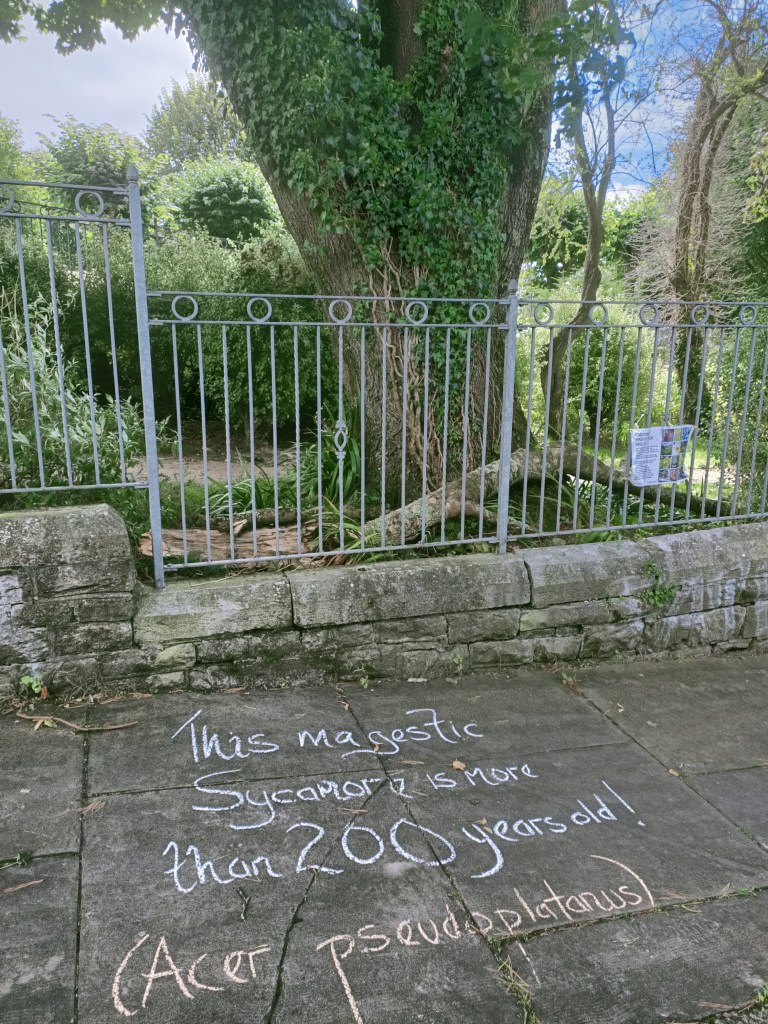 This magestic
Sycamore is more
than 200 years old!
(Acer pseudoplatanus)